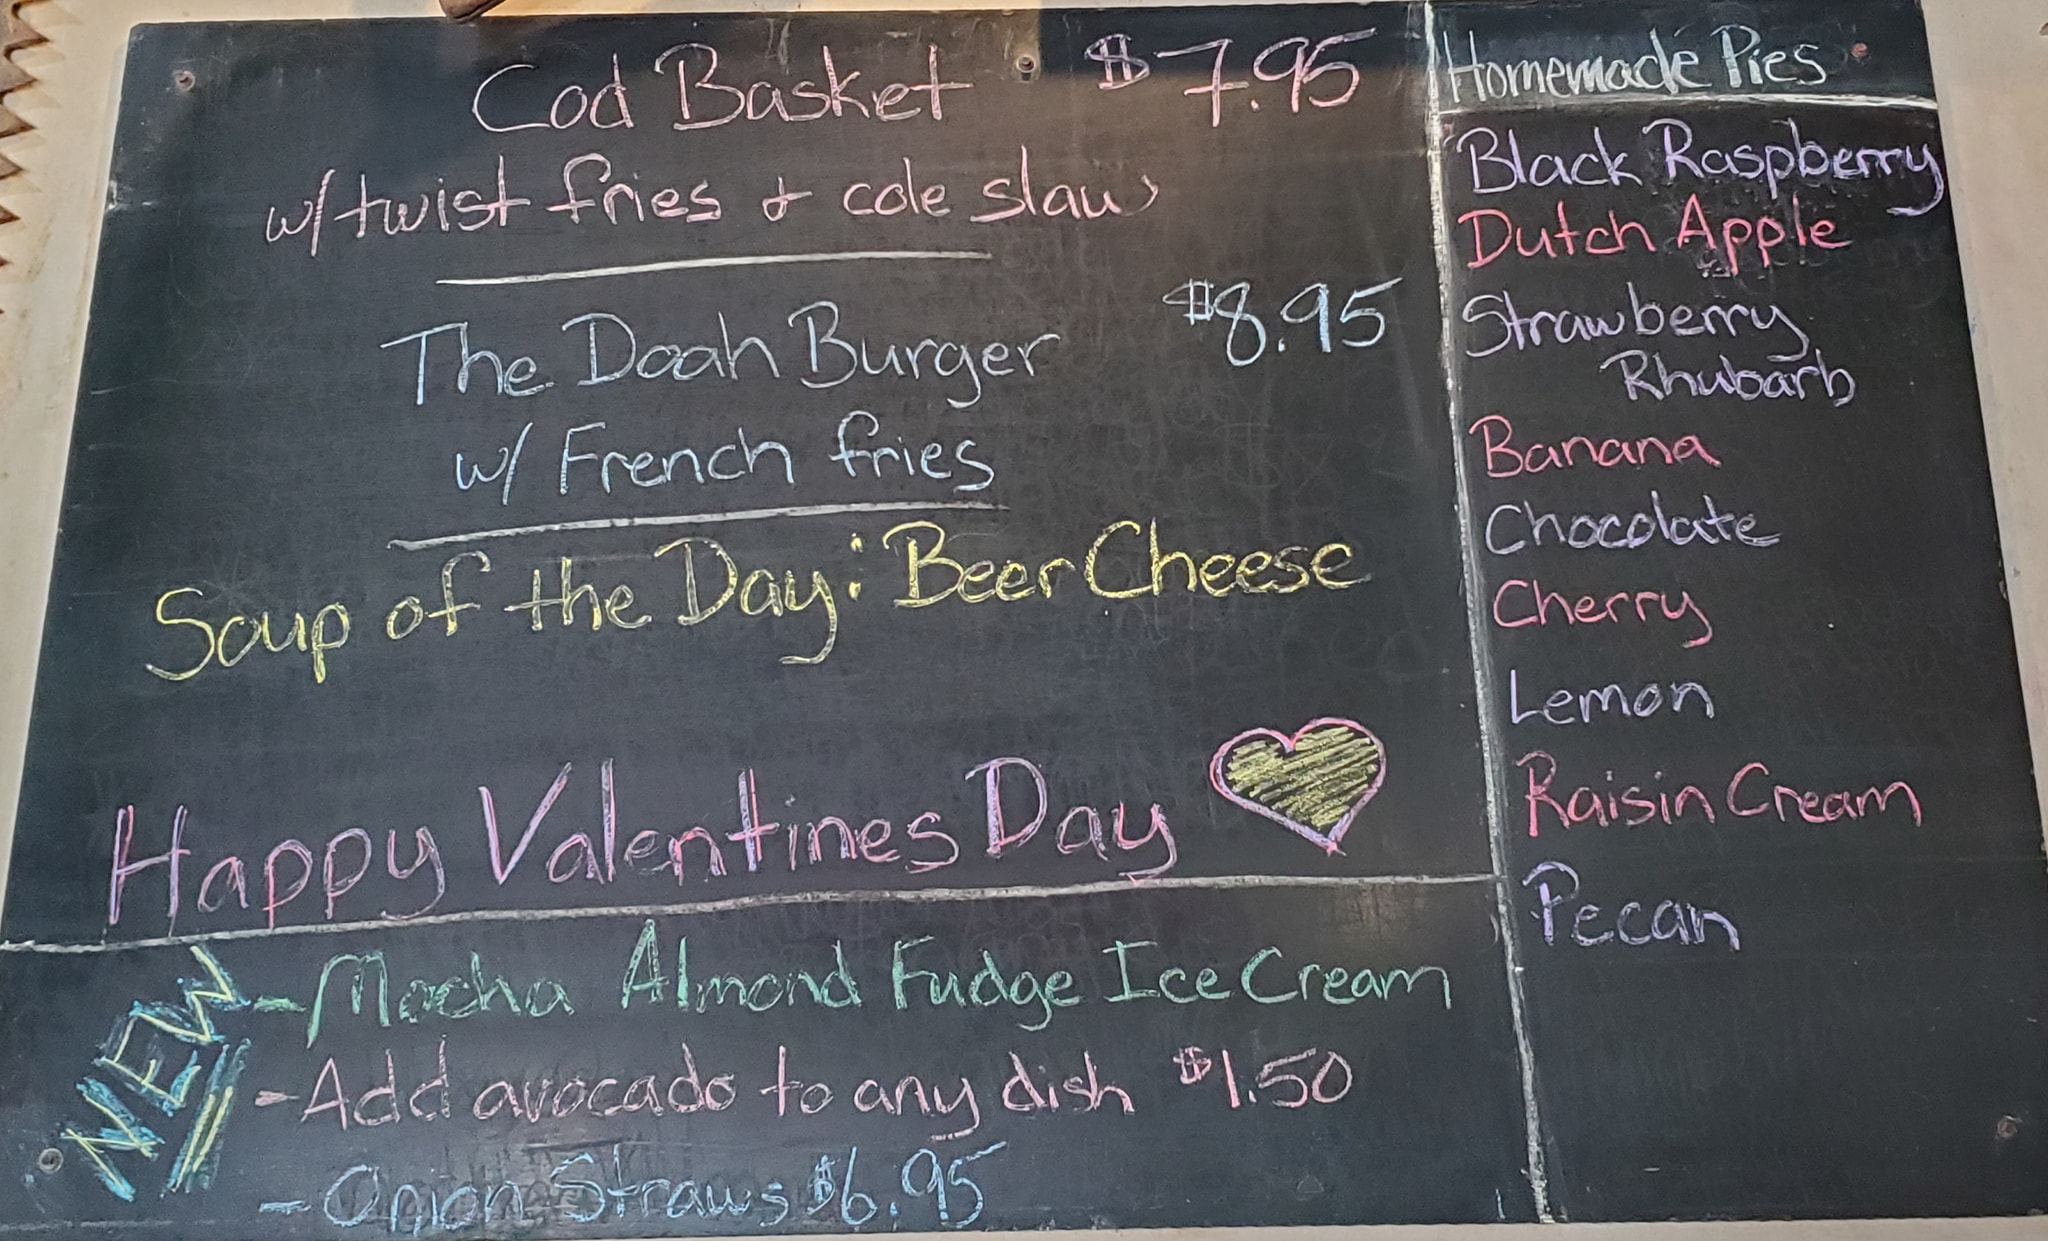 Cod Basket $7.95
w/ twist fries & cole slaw
The Doah Burger $8.95
w/ French fries
Soup of the Day: Beer Cheese
Happy Valentines Day
NEW
- Mocha Almond Fudge Ice Cream
- Add avocado to any dish $1.50
- Onion Straws $6.95
Homemade Pies
Black Raspberry
Dutch Apple
Strawberry
Rhubarb
Banana
Chocolate
Cherry
Lemon
Raisin Cream
Pecan